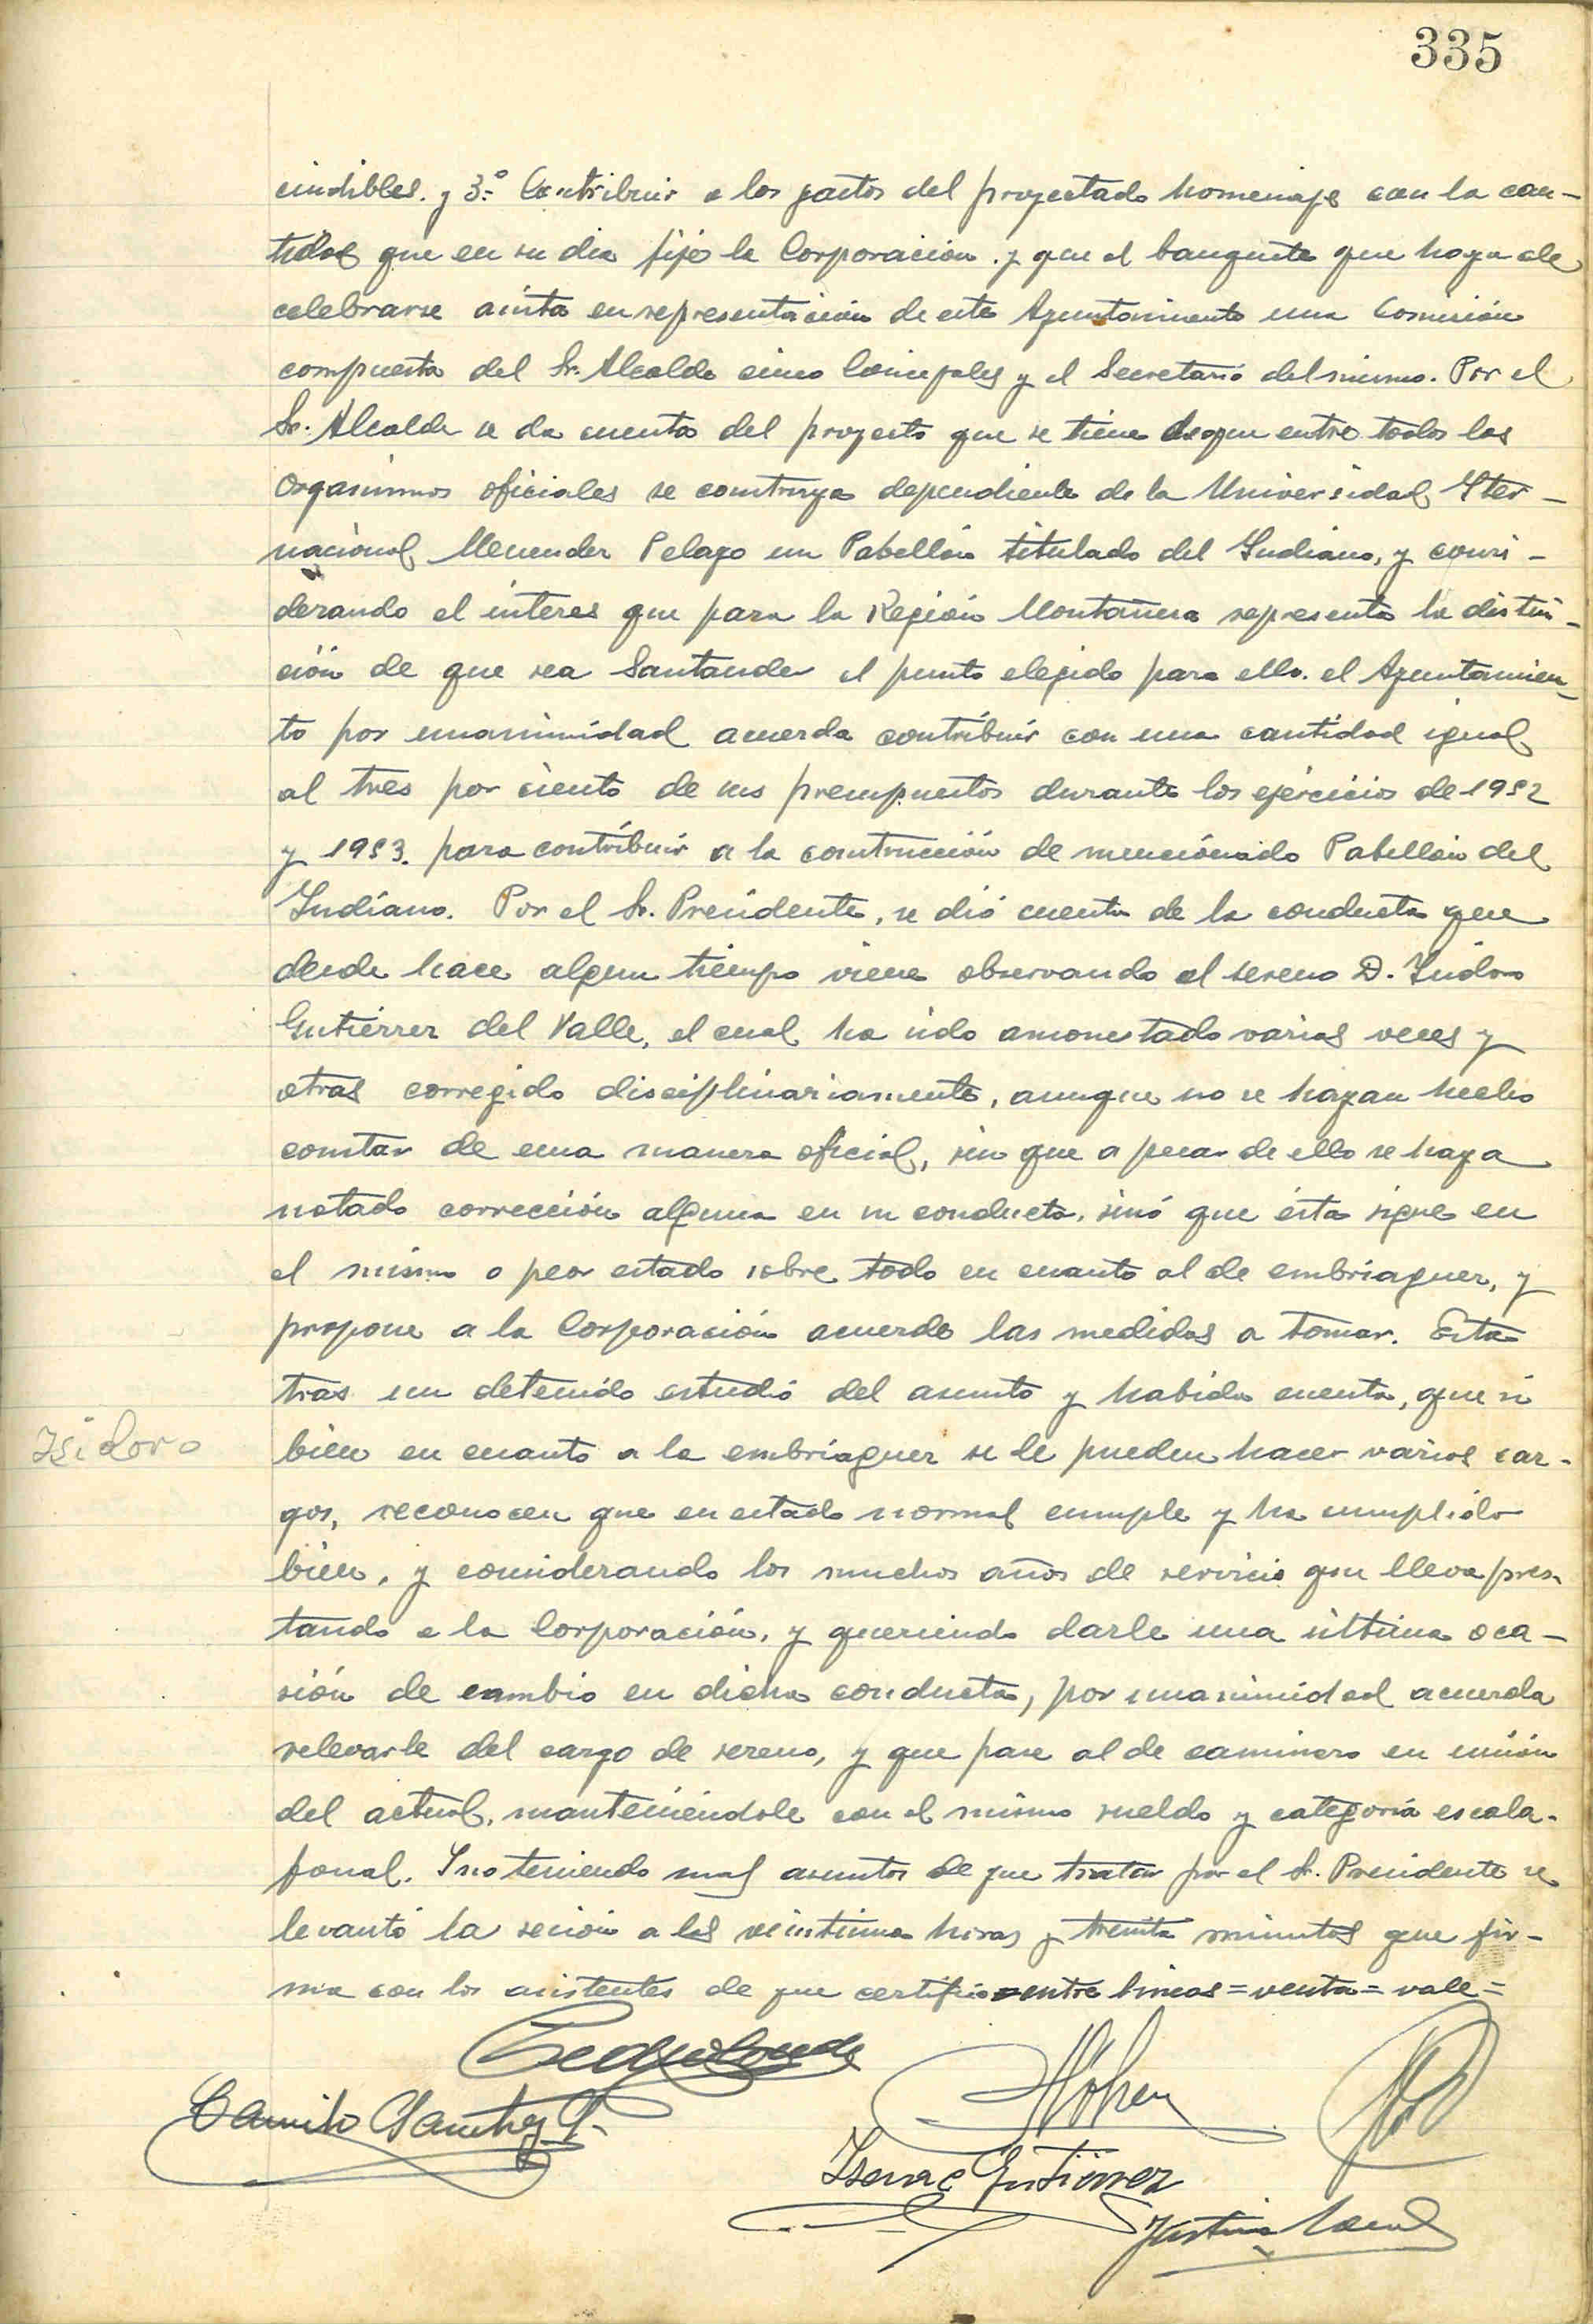 335
cindibles. y 3.º Contribuir a los gastos del proyectado homenaje con la can-
tidad que en su dia fije la Corporación. y que al banquete que haya de
celebrarse asista en representación de este Ayuntamiento una Comisión
compuesta del Sr. Alcalde cinco Concejales y el Secretario del mismo. Por el
Sr. Alcalde se da cuenta del proyecto que se tiene de que entre todos los
Organismos oficiales se construya dependiente de la Universidad Yter-
nacional Menender Pelayo un Pabellón titulado del Yndiano, y consi-
derando el interes que para la Región Montañesa representa la distin-
ción de que sea Santander el punto elegido para ello. el Ayuntamien-
to por unanimidad acuerda contribuir con una cantidad igual
al tres por ciento de sus presupuestos durante los ejercicios de 1952
y 1953. para contribuir a la construcción de mencionado Pabellón del
Yndiano. Por el Sr. Presidente, se dió cuenta de la conducta que
desde hace algun tiempo viene observando el sereno D. Ysidoro
Gutiérrez del Valle, el cual ha sido amonestado varias veces y
otras corregido disciplinariamente, aunque no se hayan hecho
constar de una manera oficial, sin que a pesar de ello se haya
notado corrección alguna en su conducta, sinó que ésta sigue en
el mismo o peor estado sobre todo en cuanto al de embriaguez, y
propone a la Corporación acuerde las medidas a tomar. Esta
tras un detenido estudio del asunto y habida cuenta, que si
Isidoro
bien en cuanto a la embriaguez se le pueden hacer varios car-
gos, reconocen que en estado normal cumple y ha cumplido
bien, y considerando los muchos años de servicio que lleva pres-
tando a la Corporación, y queriendo darle una última oca-
sión de cambio en dicha conducta, por unanimidad acuerda
relevarle del cargo de sereno, y que pase al de caminero en unión
del actual, manteniéndole con el mismo sueldo y categoría escala-
fonal. Y no teniendo mas asuntos de que tratar por el Sr. Presidente se
levantó la sesión a las veintiuna horas y treinta minutos que fir-
ma con los asistentes de que certifico=entre lineas=venta=vale=
Camilo Sanchez G.
Isaac Gutiérrez